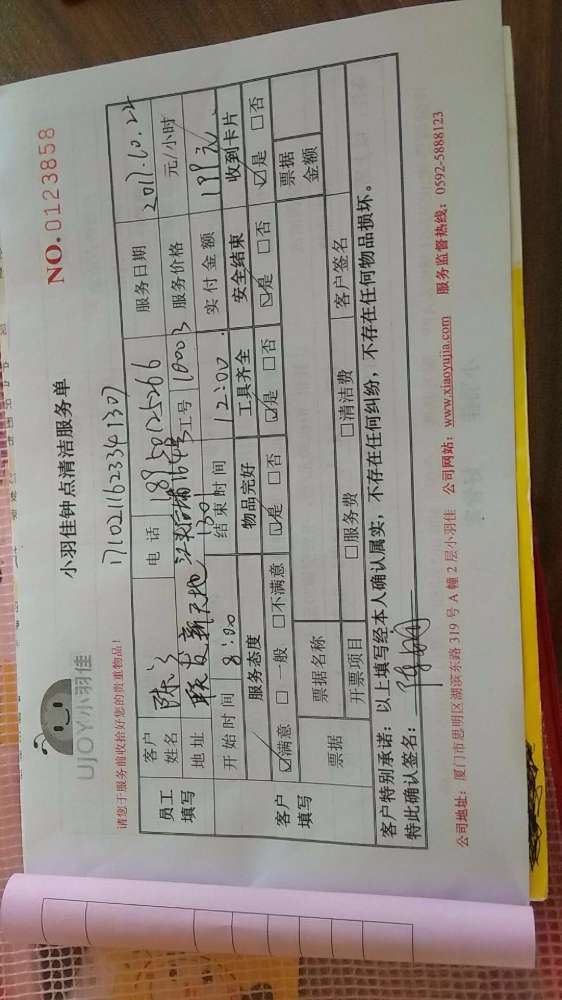 UJOY小羽佳
小羽佳钟点清洁服务单
NO.0123858
请您于服务前收拾好您的贵重物品！
1710211623341307
员工填写 客户姓名 陈 电话 服务日期 2017.10.22
地址 联发新天地 1301 工号 10003 服务价格 元/小时
开始时间 8:00 结束时间 12:00. 实付金额 199元
客户填写 服务态度 物品完好 工具齐全 安全结束 收到卡片
☑满意 □一般 □不满意 ☑是 □否 ☑是 □否 ☑是 □否 ☑是 □否
票据 票据名称 票据金额
开票项目 □服务费 □清洁费 客户签名
客户特别承诺：以上填写经本人确认属实，不存在任何纠纷，不存在任何物品损坏。
特此确认签名：
公司地址：厦门市思明区湖滨东路 319 号 A 幢 2 层小羽佳 公司网站：www.xiaoyujia.com 服务监督热线：0592-5888123